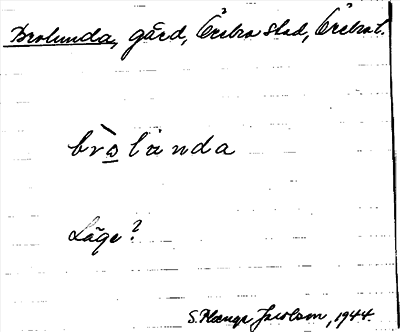 Brolunda, gård, Örebro stad, Örebro l.
brolunda
Läge?
S. Jacobson, 1944.